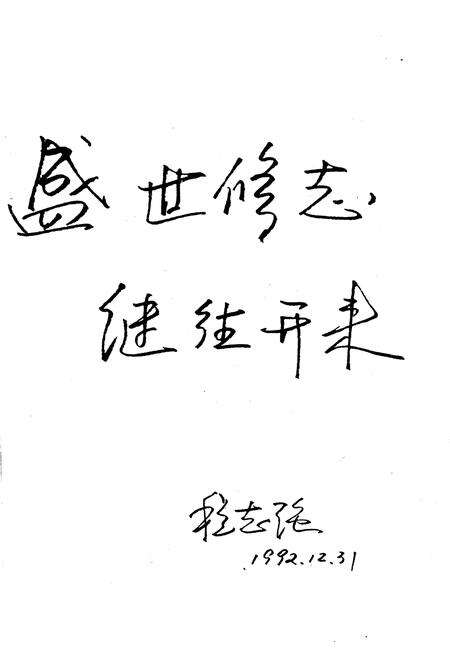 盛世修志
继往开来
程志强
1992.12.31